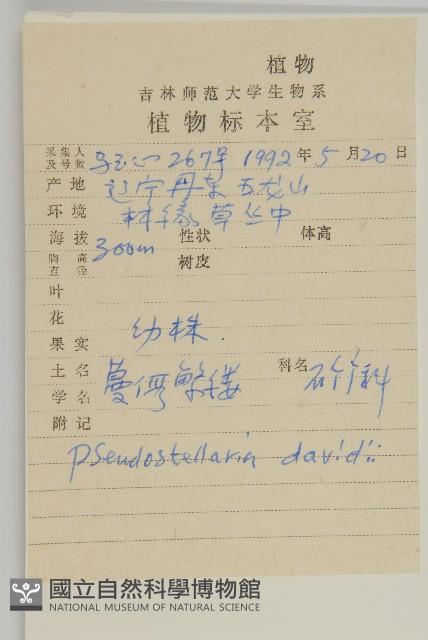 植物
吉林师范大学生物系
植物标本室
采集人及号数 马玉心 267号 1992年5月20日
产地 辽宁丹东五龙山
环境 林缘草丛中
海拔 300m 性状 体高
胸高直径 树皮
叶
花
果实 幼株.
土名 蔓假繁缕 科名 石竹科
学名
附记
Pseudostellaria davidii
國立自然科學博物館
NATIONAL MUSEUM OF NATURAL SCIENCE